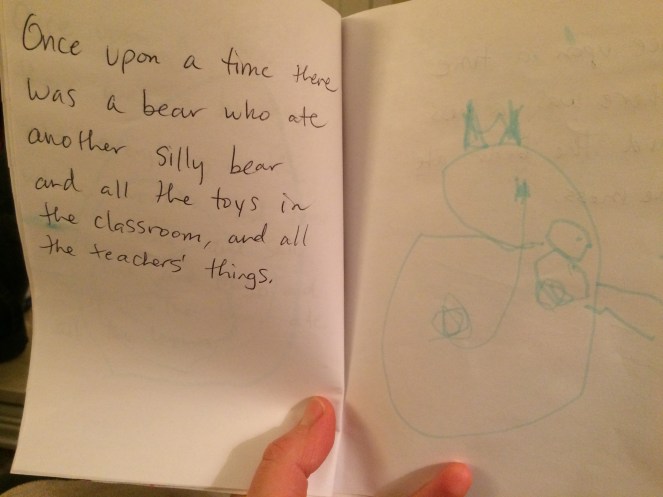 Once upon a time there
was a bear who ate
another silly bear
and all the toys in
the classroom, and all
the teachers' things.